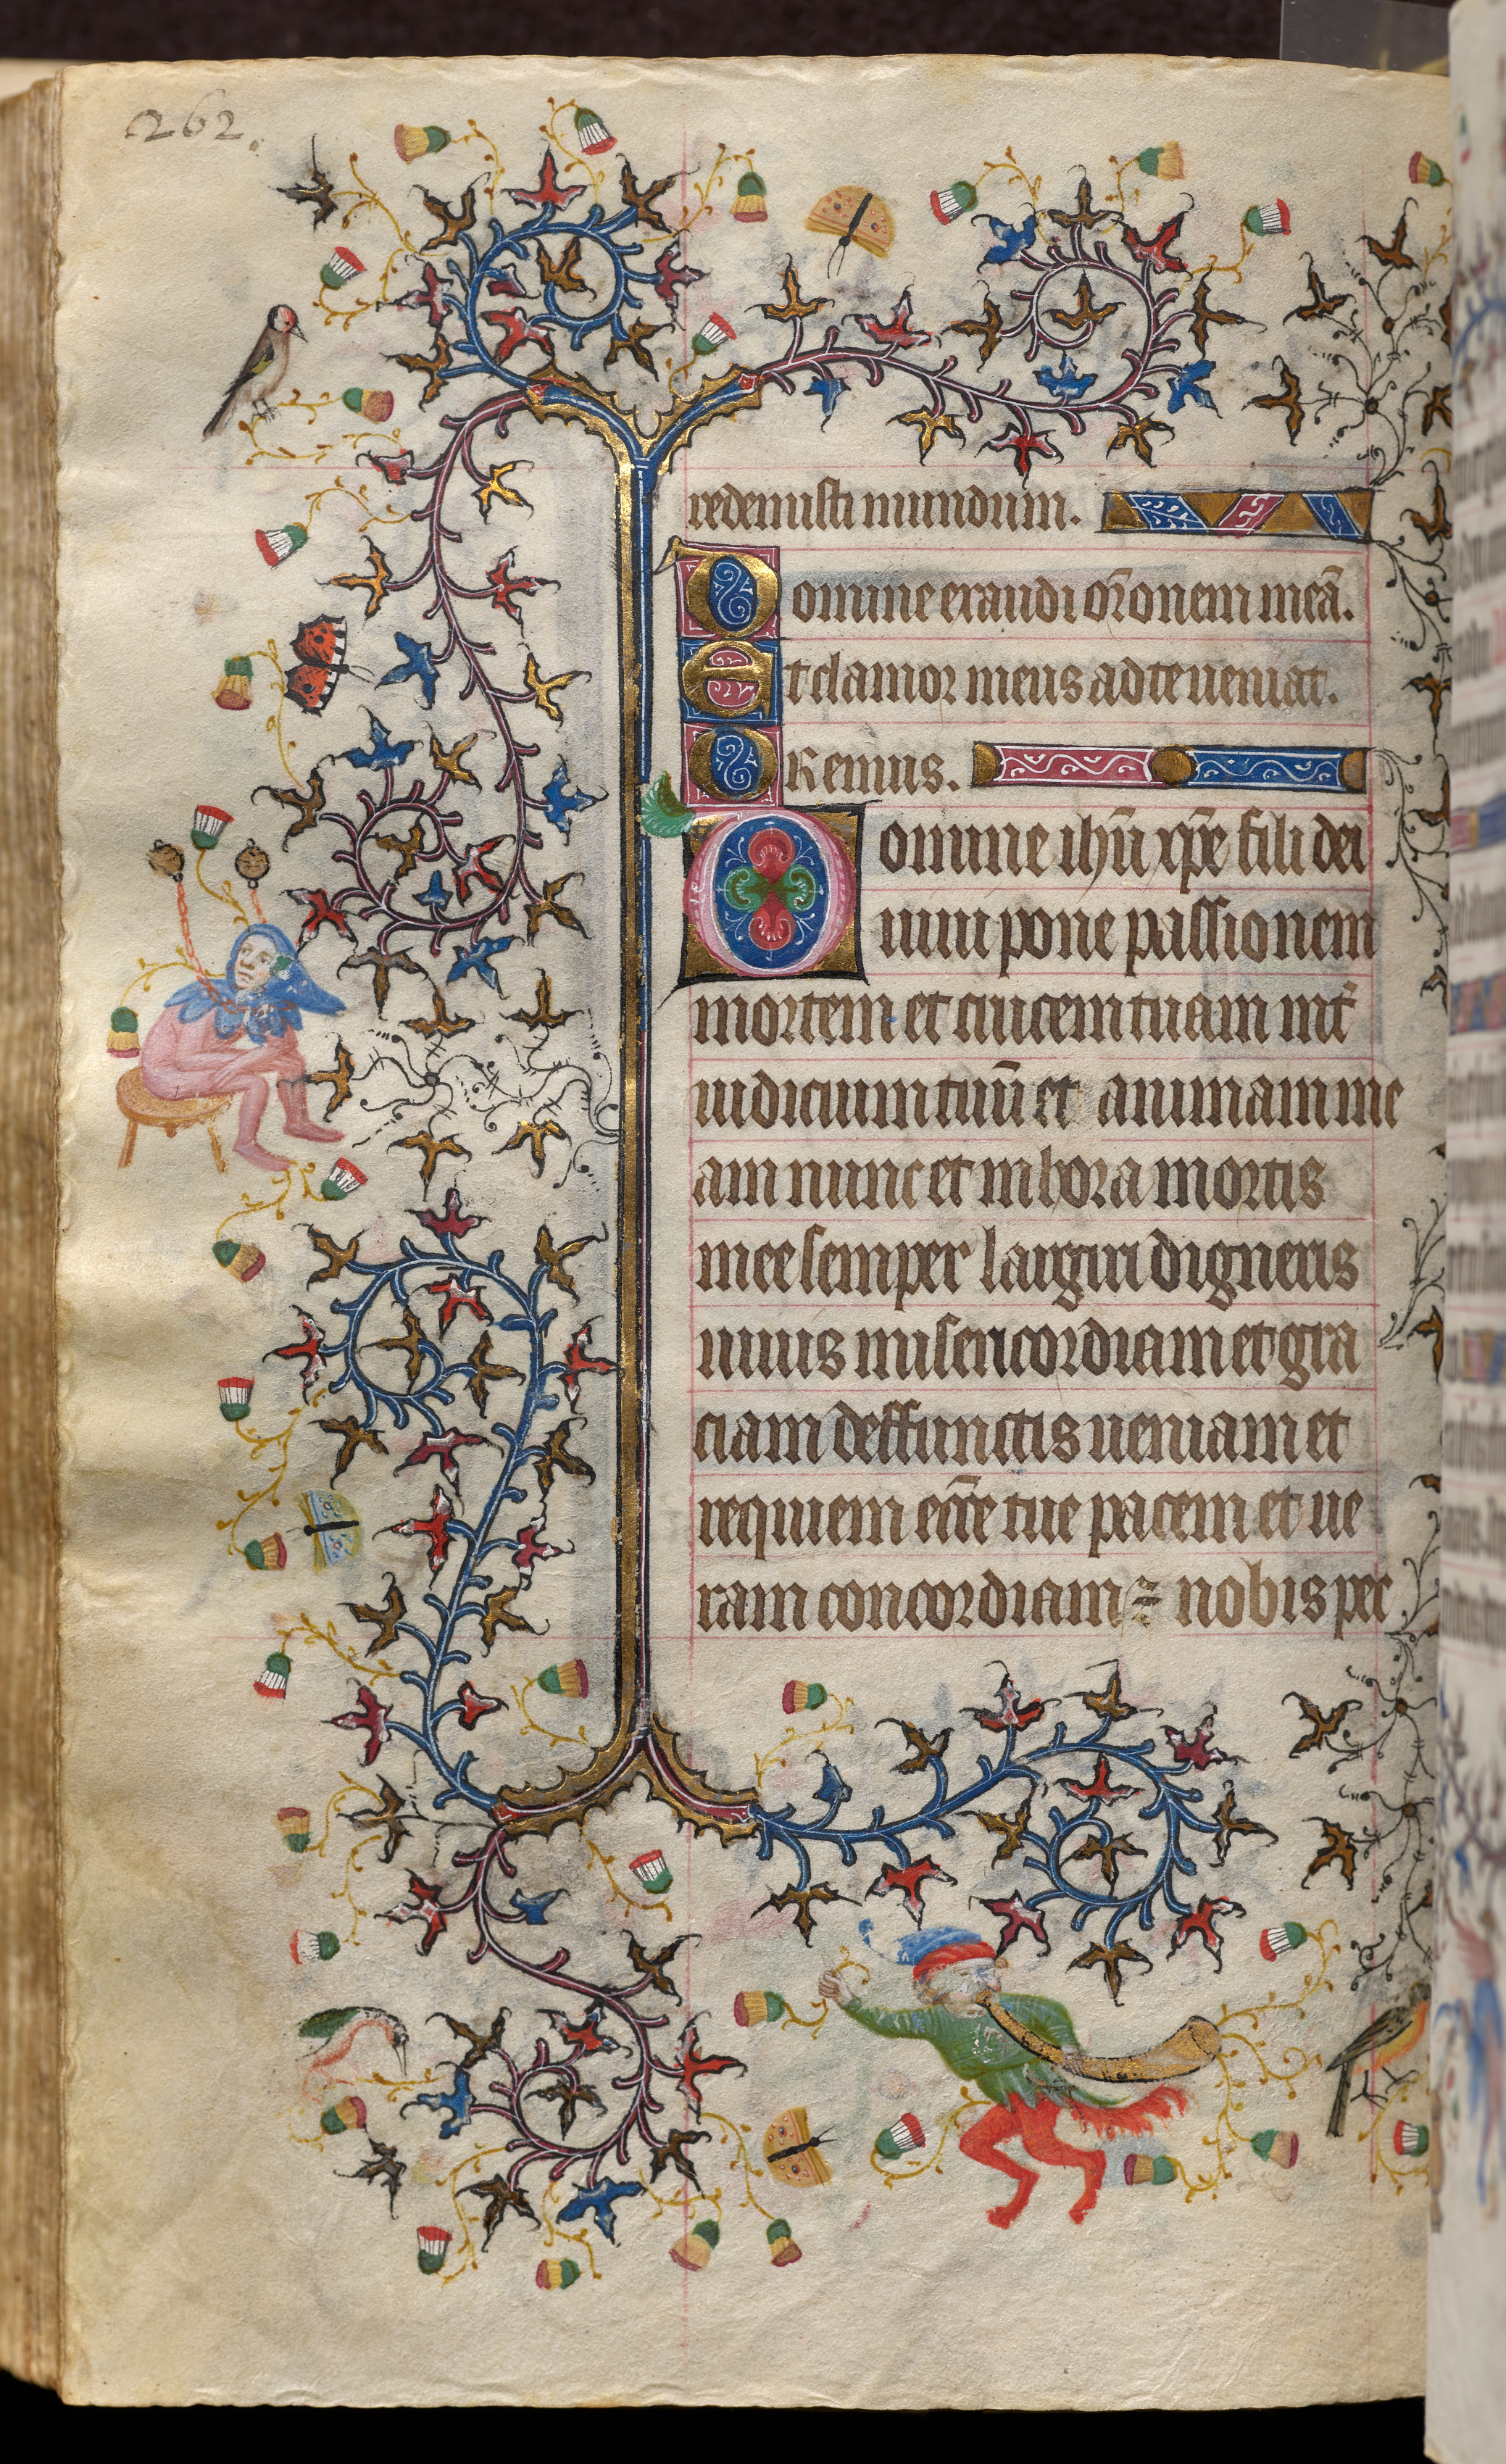 262.
redemisti mundum.
Domine exaudi or̄onem meā.
Et clamor meus ad te ueniat.
Oremus.
Domine ihū xp̄e fili dei
uiui pone passionem
mortem et crucem tuam int̄
iudicium tuū et animam me
am nunc et in hora mortis
mee semper largiri digneris
uiuis misericordiam et gra
ciam deffunctis ueniam et
requiem ecc̄e tue pacem et ue
ram concordiam ⁊ nobis pec